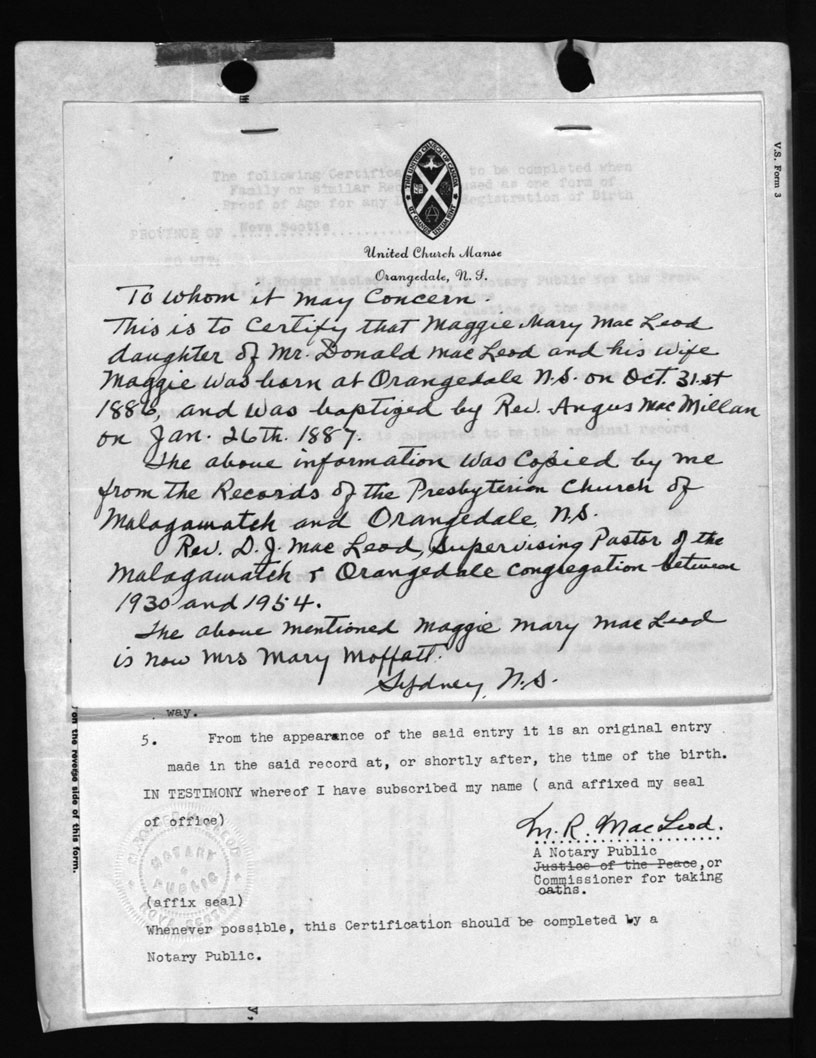 V.S. Form 3
The following Certific to be completed when
Family or Similar Rec used as one form of
Proof of Age for any Registration of Birth
PROVINCE OF Nova Scotia
THE UNITED CHURCH OF CANADA
UT OMNES UNUM SINT
United Church Manse
Orangedale, N. S.
To Whom it May Concern.
This is to Certify that Maggie Mary MacLeod
daughter of Mr. Donald MacLeod and his wife
Maggie was born at Orangedale N.S. on Oct. 31st
1886, and was baptized by Rev. Angus MacMillan
on Jan. 26th. 1887.
The above information was Copied by me
from the Records of the Presbyterian Church of
Malagawatch and Orangedale, N.S.
Rev. D. J. MacLeod, Supervising Pastor of the
Malagawatch & Orangedale congregation between
1930 and 1954.
The above mentioned Maggie Mary MacLeod
is now Mrs Mary Moffatt.
Sydney, N.S.
way.
5. From the appearance of the said entry it is an original entry
made in the said record at, or shortly after, the time of the birth.
IN TESTIMONY whereof I have subscribed my name ( and affixed my seal
of office)
M. R. MacLeod.
A Notary Public
Justice of the Peace, or
Commissioner for taking
oaths.
NOTARY
PUBLIC
(affix seal)
Whenever possible, this Certification should be completed by a
Notary Public.
on the reverse side of this form.